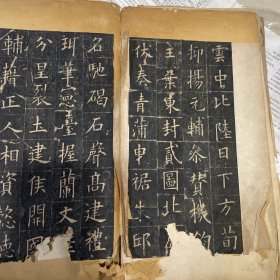 雲中比陸日下方荀
抑揚元輔參贊機
主桑東封貳圖北
伏奏青蒲申裾朱邸
名馳碣石聲高建禮
珥筆憲臺握蘭文
分呈裂土建侯開國
輔藉正人和資懿德